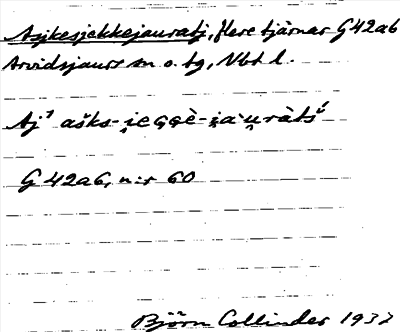 Asjkesjekkejauratj, flere tjärnar G 42a6
Arvidsjaurs sn o. tg, Vbt l.
Aj¹ aška-i̯eggè-i̯a·u̯ràtš́
G 42a6, n:r 60
Björn Collinder 1937